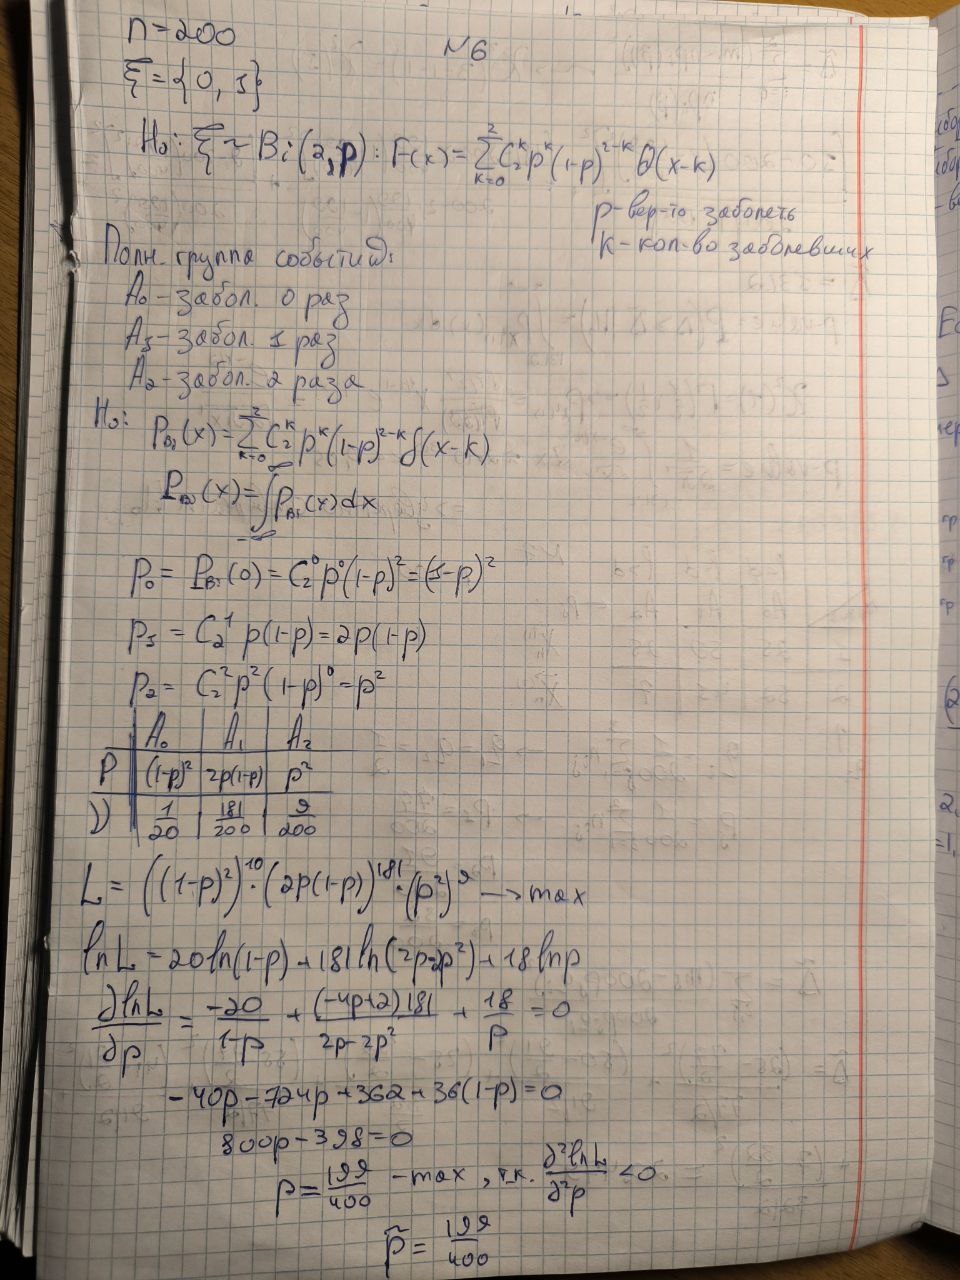 n = 200
N6
ξ = {0, 1}
H₀: ξ ~ Bi(2, p) : F(x) = ∑_{k=0}^{2} C₂ᵏ pᵏ (1-p)²⁻ᵏ θ(x-k)
p - вер-ть заболеть
k - кол-во заболевших
Полн. группа событий:
A₀ - забол. 0 раз
A₁ - забол. 1 раз
A₂ - забол. 2 раза
H₀: P_{Bi}(x) = ∑_{k=0}^{2} C₂ᵏ pᵏ (1-p)²⁻ᵏ δ(x-k)
P_{Bi}(x) = ∫_{-∞}^{∞} P_{Bi}(x) dx
p₀ = P_{Bi}(0) = C₂⁰ p⁰ (1-p)² = (1-p)²
p₁ = C₂¹ p(1-p) = 2p(1-p)
p₂ = C₂² p² (1-p)⁰ = p²
A₀ A₁ A₂
P (1-p)² 2p(1-p) p²
ν 1/20 181/200 9/200
L = ((1-p)²)¹⁰ · (2p(1-p))¹⁸¹ · (p²)⁹ → max
ln L = 20 ln(1-p) + 181 ln(2p-2p²) + 18 ln p
∂lnL/∂p = -20/(1-p) + (-4p+2)181/(2p-2p²) + 18/p = 0
-40p - 724p + 362 + 36(1-p) = 0
800p - 398 = 0
p = 199/400 - max, т.к. ∂²lnL/∂²p < 0
p̃ = 199/400